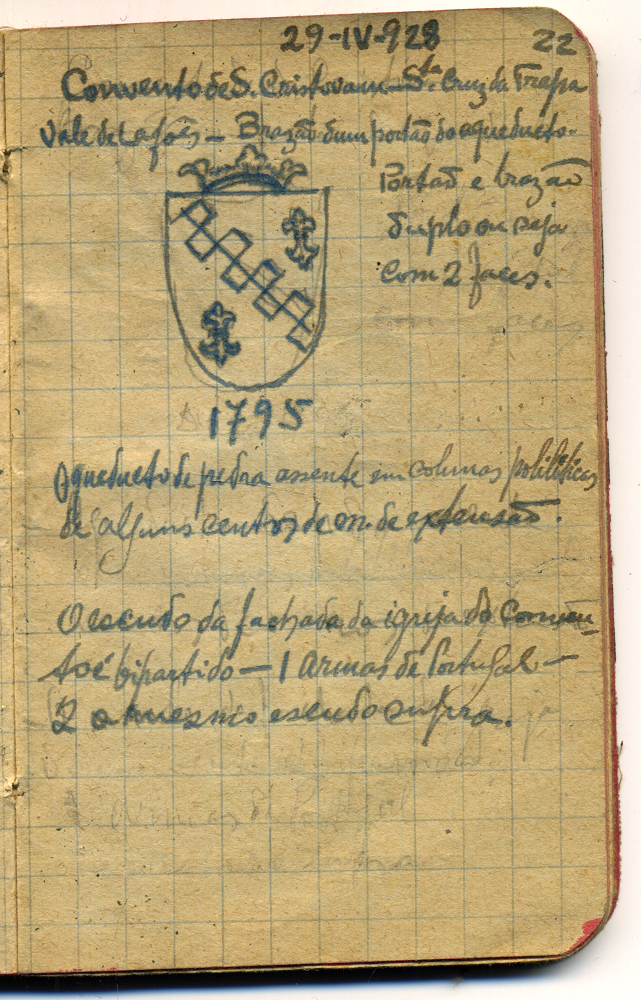 29-IV-928
22
Convento de S. Cristovam - Sta. Cruz da Trapa
Vale de Lafões - Brazão dum portão do aqueducto.
Portão e brazão
duplo ou seja
com 2 faces.
1795
Aqueducto de pedra assente em colunas
de alguns centos de m. de extensão.
O escudo da fachada da igreja do Conven-
to é bipartido - 1 Armas de Portugal -
2 o mesmo escudo supra.